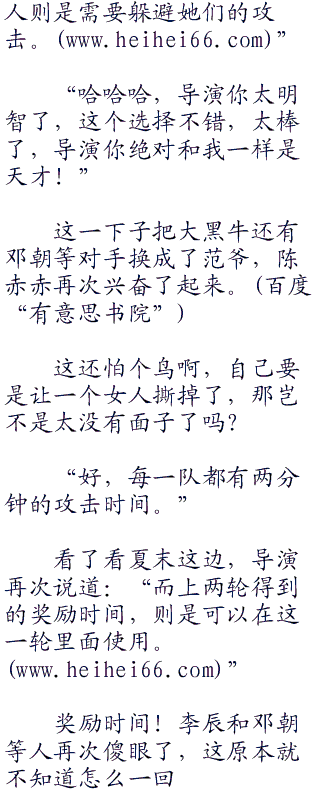 人则是需要躲避她们的攻
击。(www.heihei66.com)”
“哈哈哈，导演你太明
智了，这个选择不错，太棒
了，导演你绝对和我一样是
天才！”
这一下子把大黑牛还有
邓朝等对手换成了范爷，陈
赤赤再次兴奋了起来。(百度
“有意思书院”)
这还怕个鸟啊，自己要
是让一个女人撕掉了，那岂
不是太没有面子了吗？
“好，每一队都有两分
钟的攻击时间。”
看了看夏末这边，导演
再次说道：“而上两轮得到
的奖励时间，则是可以在这
一轮里面使用。
(www.heihei66.com)”
奖励时间！李辰和邓朝
等人再次傻眼了，这原本就
不知道怎么一回